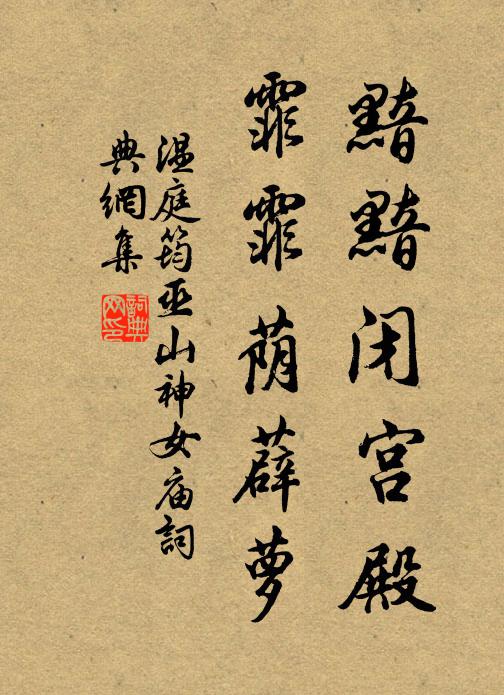 黯黯闭宫殿
霏霏荫薜萝
温庭筠巫山神女庙詞
典網集
詞典
网印